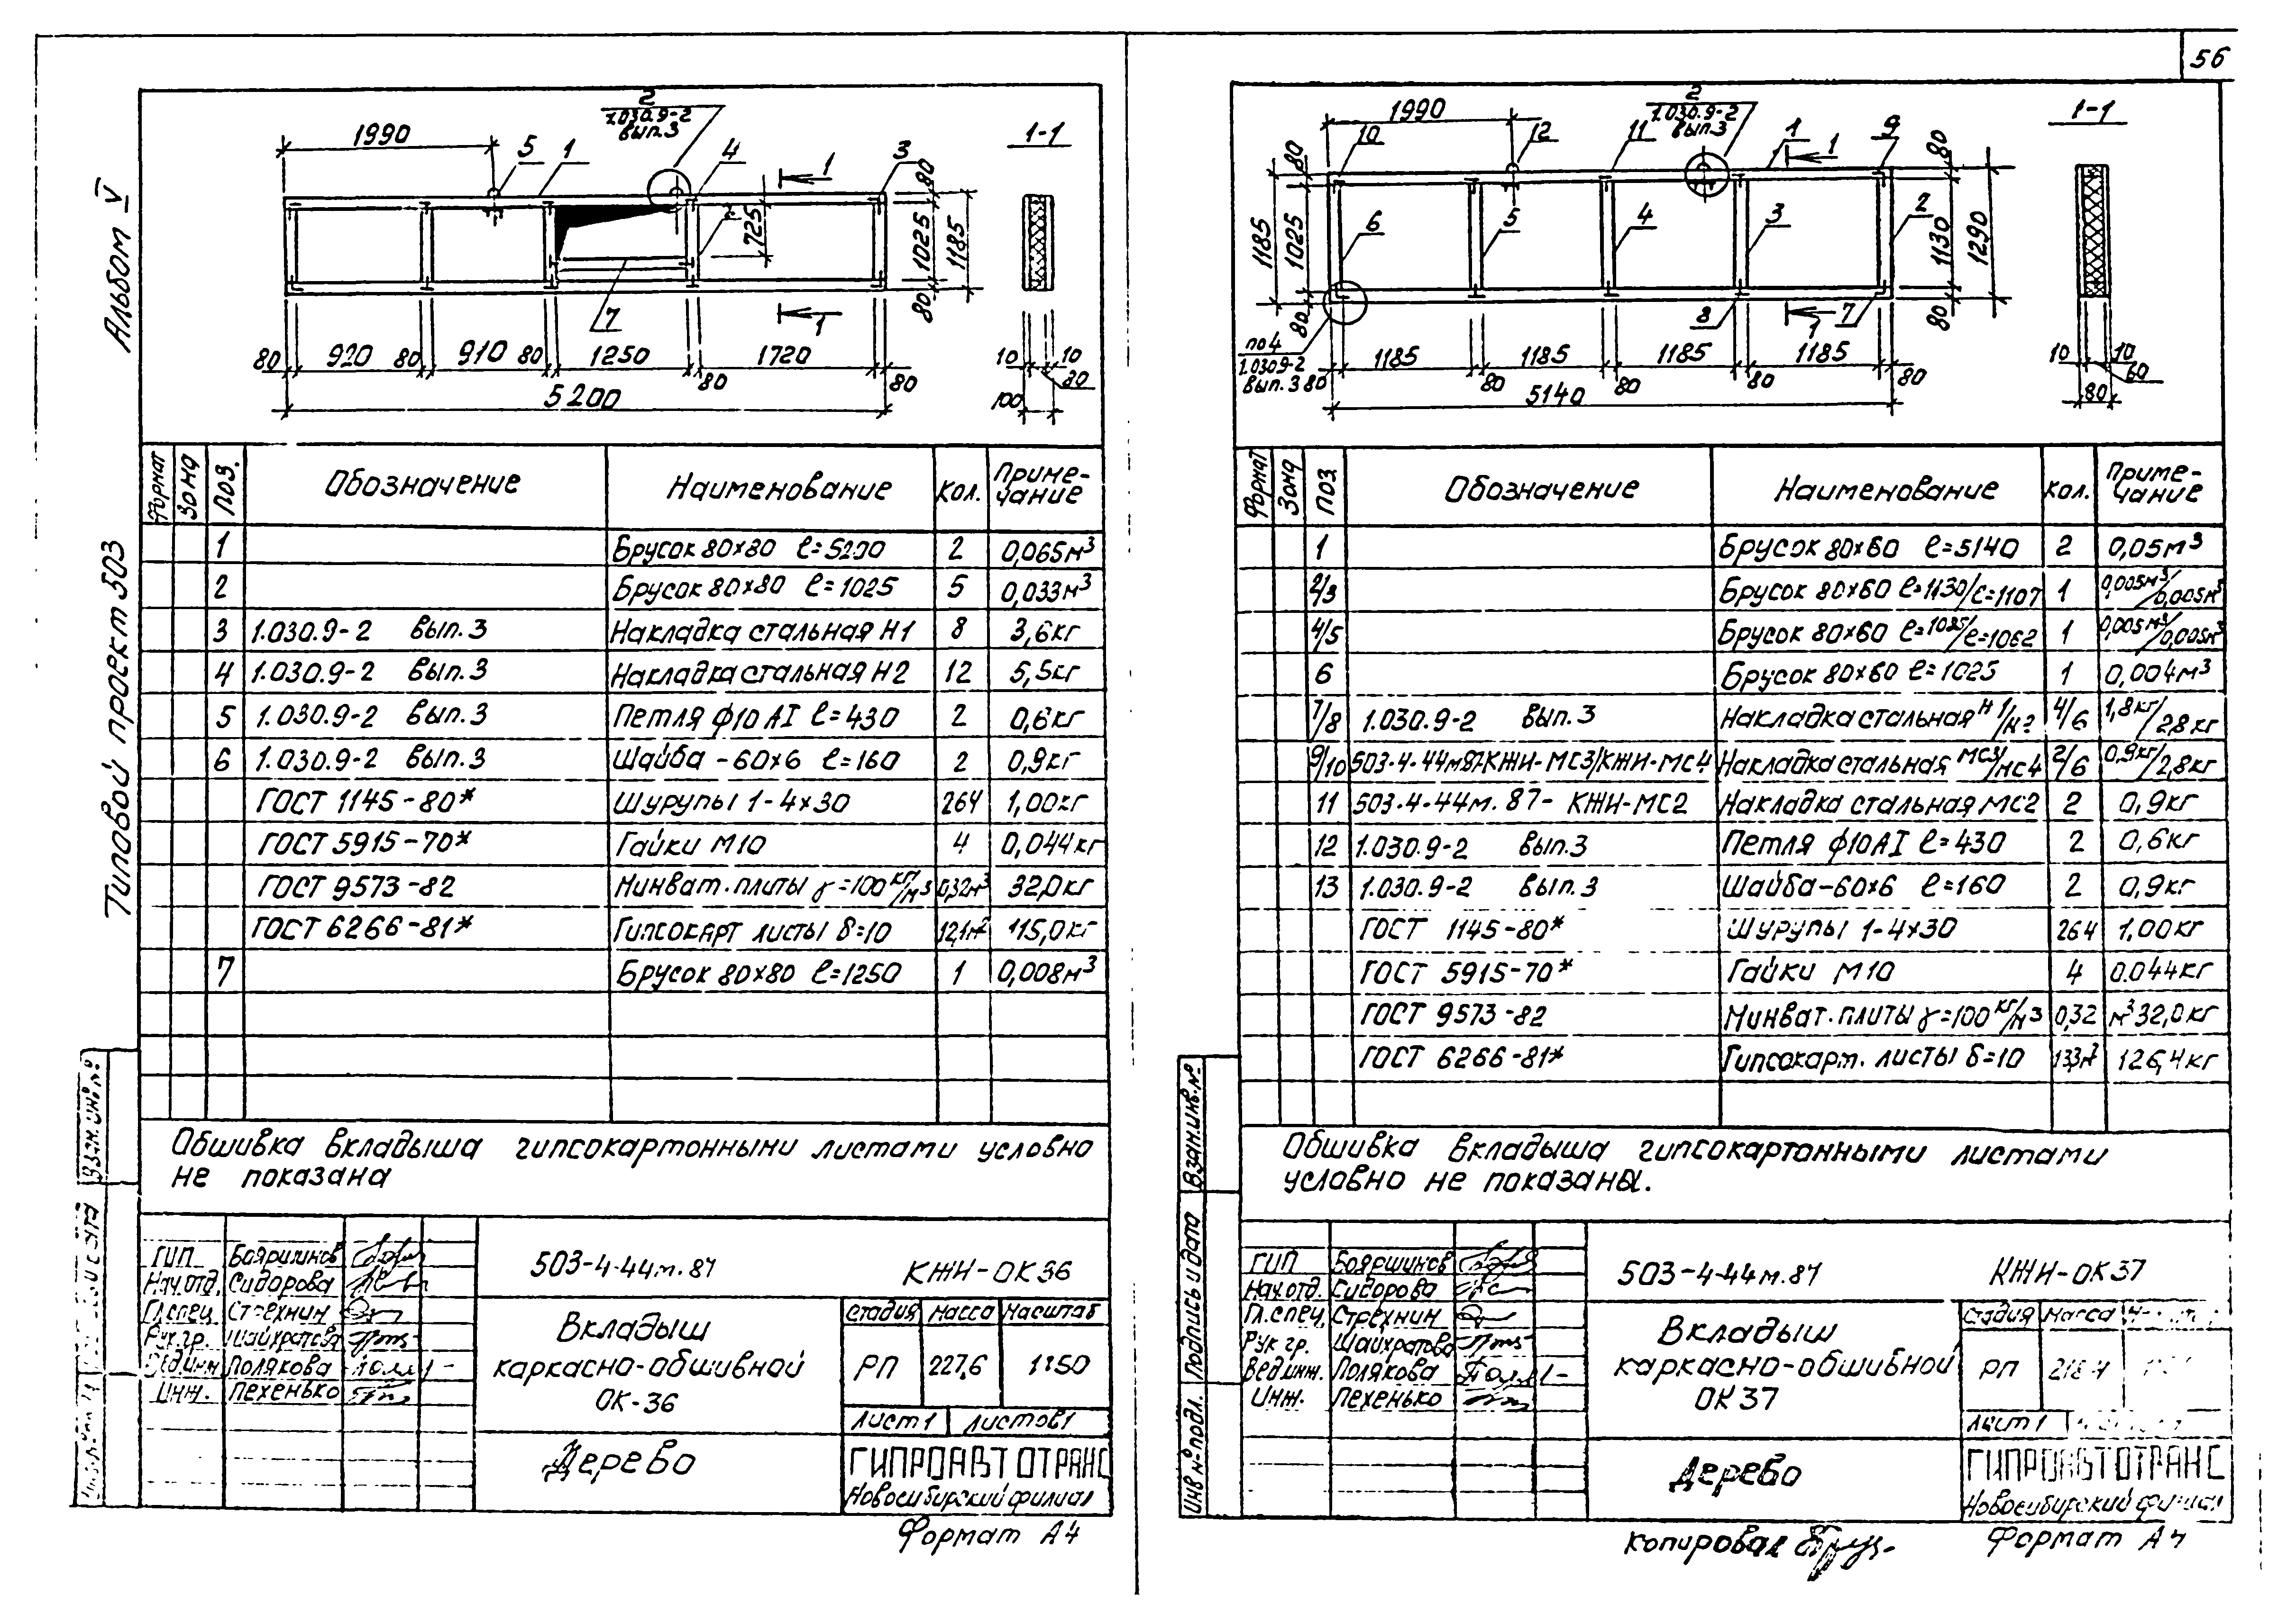 56
Альбом V
Типовой проект 503
1990
5
1
2
1.030.9-2
вып.3
4
1
3
80
1-1
2
725
1025
1185
7
1
80
80 920 80 910 80 1250 80 1720 80
5200
10 10
80
100
Формат Зона Поз. Обозначение Наименование Кол. Примечание
1 Брусок 80×80 ℓ=5200 2 0,065м³
2 Брусок 80×80 ℓ=1025 5 0,033м³
3 1.030.9-2 вып.3 Накладка стальная Н1 8 3,6кг
4 1.030.9-2 вып.3 Накладка стальная Н2 12 5,5кг
5 1.030.9-2 вып.3 Петля ф10АI ℓ=430 2 0,6кг
6 1.030.9-2 вып.3 Шайба -60×6 ℓ=160 2 0,9кг
ГОСТ 1145-80* Шурупы 1-4×30 264 1,00кг
ГОСТ 5915-70* Гайки М10 4 0,044кг
ГОСТ 9573-82 Минват.плиты γ=100кг/м3 0,32м³ 32,0кг
ГОСТ 6266-81* Гипсокарт листы δ=10 12,1м² 115,0кг
7 Брусок 80×80 ℓ=1250 1 0,008м³
Обшивка вкладыша гипсокартонными листами условно
не показана
Взам.инв.№
ГИП Бояршинов
Нач.отд. Сидорова
Гл.спец. Стрехнин
Рук.гр. Шайхратова
Вед.инж. Полякова
Инж. Пехенько
503-4-44м.87 КЖИ-ОК36
Вкладыш
каркасно-обшивной
ОК-36
Стадия Масса Масштаб
РП 227,6 1:50
Лист 1 Листов 1
Дерево
ГИПРОАВТОТРАНС
Новосибирский филиал
Формат А4
1990
10
12
11
2
1.030.9-2
вып.3
1
1
9
80
1-1
80
1185
1025
80
6
5
4
3
2
1130
1290
80
8
1
7
по 4
1.030.9-2
вып.3 80 1185 80 1185 80 1185 80 1185 80
5140
10 10
60
80
Формат Зона Поз. Обозначение Наименование Кол. Примечание
1 Брусок 80×60 ℓ=5140 2 0,05м³
2/3 Брусок 80×60 ℓ=1130/ℓ=1107 1 0,005м³/0,005м³
4/5 Брусок 80×60 ℓ=1085/ℓ=1062 1 0,005м³/0,005м³
6 Брусок 80×60 ℓ=1025 1 0,004м³
7/8 1.030.9-2 вып.3 Накладка стальная Н1/Н2 4/6 1,8кг/2,8кг
9/10 503-4-44м87-КЖИ-МС3/КЖИ-МС4 Накладка стальная МС3/МС4 2/6 0,9кг/2,8кг
11 503-4-44м.87- КЖИ-МС2 Накладка стальная МС2 2 0,9кг
12 1.030.9-2 вып.3 Петля ф10АI ℓ=430 2 0,6кг
13 1.030.9-2 вып.3 Шайба-60×6 ℓ=160 2 0,9кг
ГОСТ 1145-80* Шурупы 1-4×30 264 1,00кг
ГОСТ 5915-70* Гайки М10 4 0.044кг
ГОСТ 9573-82 Минват.плиты γ=100кг/м3 0,32 м³ 32,0кг
ГОСТ 6266-81* Гипсокарт. листы δ=10 13,3м² 126,4кг
Обшивка вкладыша гипсокартонными листами
условно не показаны.
Взам.инв.№
Подпись и дата
Инв № подл.
ГИП Бояршинов
Нач.отд. Сидорова
Гл.спец. Стрехнин
Рук гр. Шайхратова
Вед.инж. Полякова
Инж. Пехенько
503-4-44м.87 КЖИ-ОК37
Вкладыш
каркасно-обшивной
ОК37
Стадия Масса
РП 218,4
Лист 1
Дерево
ГИПРОАВТОТРАНС
Новосибирский филиал
Копировал
Формат А4